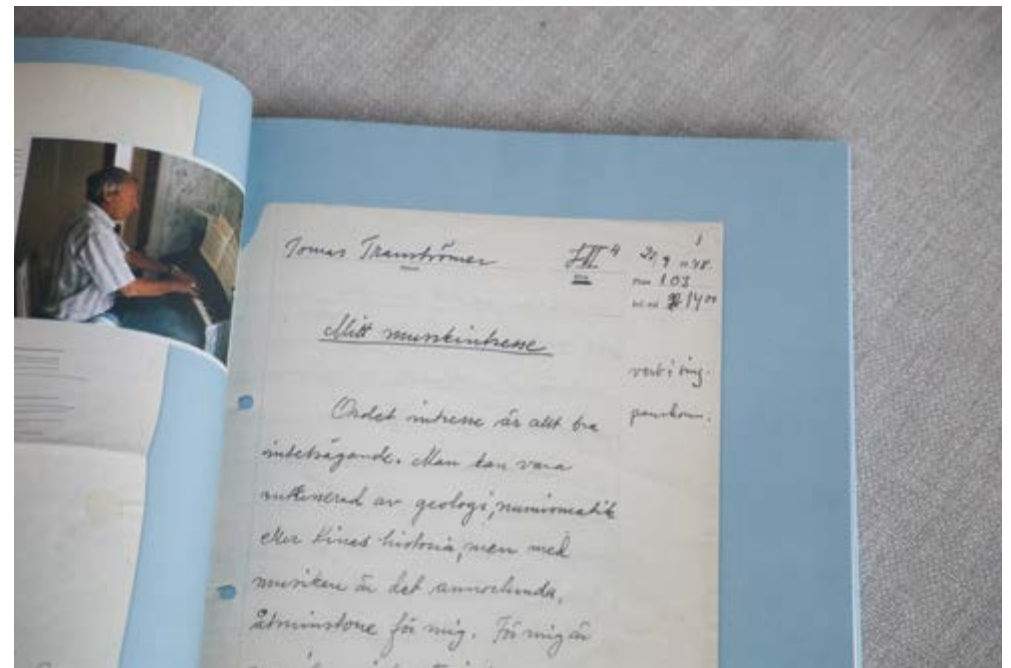 Tomas Tranströmer
1
4
Mitt musikintresse
Ordet intresse är allt bra
intetsägande. Man kan vara
intresserad av geologi, numismatik
eller Kinas historia, men med
musiken är det annorlunda,
åtminstone för mig. För mig är